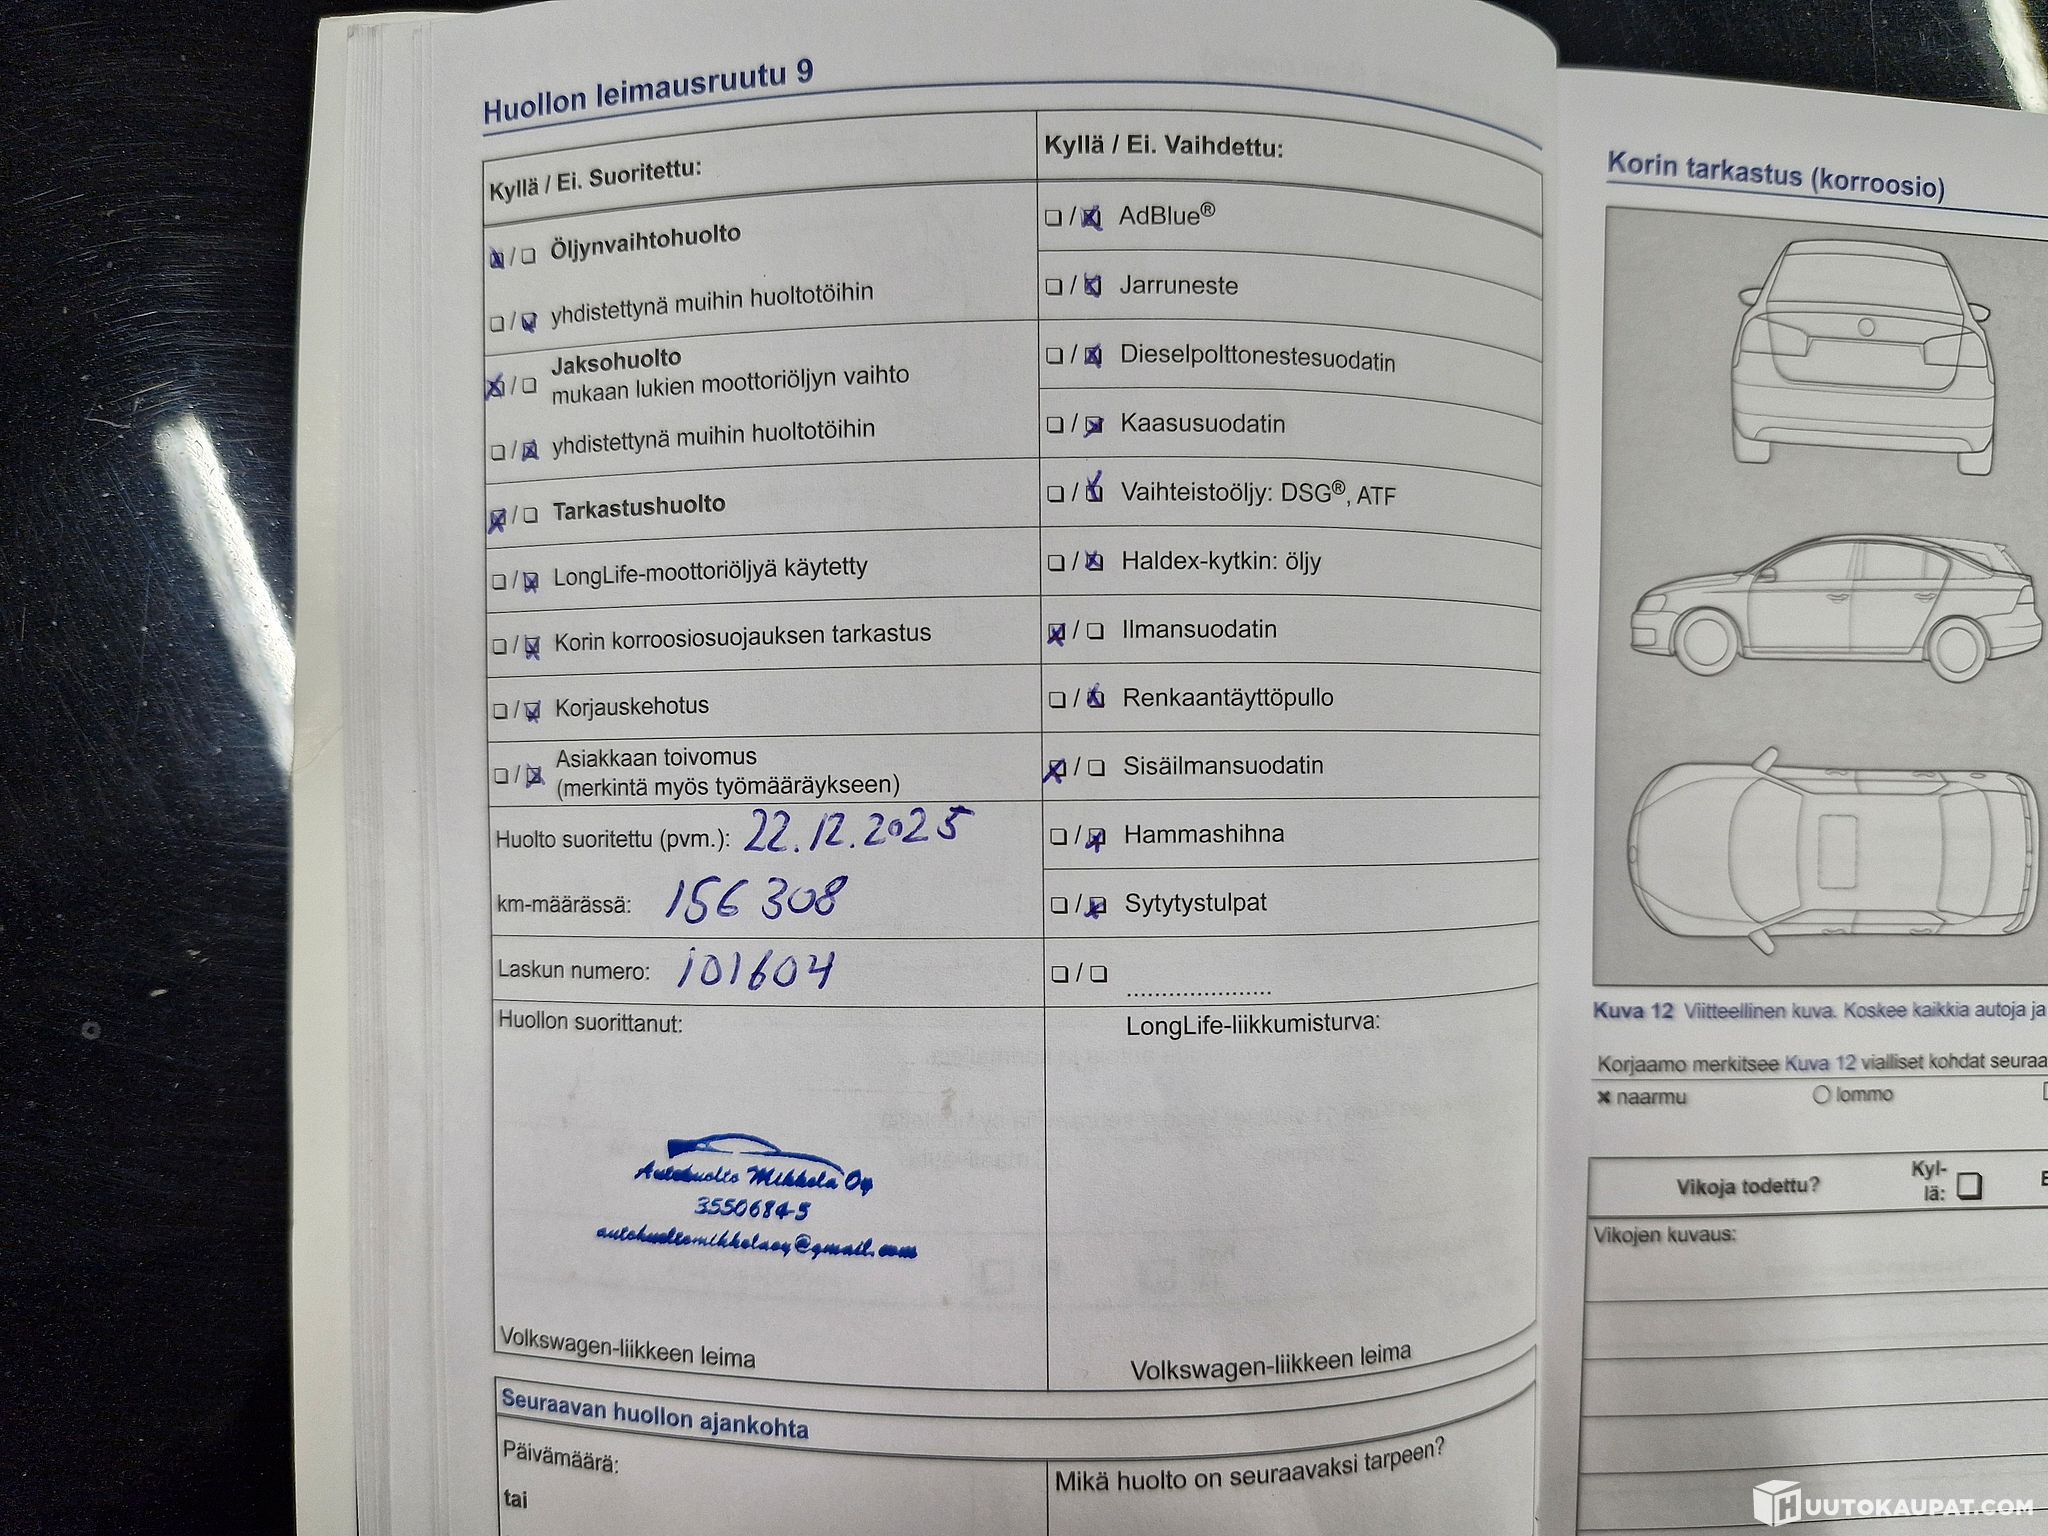 Huollon leimausruutu 9
Kyllä / Ei. Suoritettu:
Öljynvaihtohuolto
yhdistettynä muihin huoltotöihin
Jaksohuolto
mukaan lukien moottoriöljyn vaihto
yhdistettynä muihin huoltotöihin
Tarkastushuolto
LongLife-moottoriöljyä käytetty
Korin korroosiosuojauksen tarkastus
Korjauskehotus
Asiakkaan toivomus
(merkintä myös työmääräykseen)
Huolto suoritettu (pvm.): 22.12.2025
km-määrässä: 156 308
Laskun numero: 101604
Huollon suorittanut:
Autohuolto Mikkola Oy
3550684-5
autohuoltomikkolaoy@gmail.com
Volkswagen-liikkeen leima
Kyllä / Ei. Vaihdettu:
AdBlue®
Jarruneste
Dieselpolttonestesuodatin
Kaasusuodatin
Vaihteistoöljy: DSG®, ATF
Haldex-kytkin: öljy
Ilmansuodatin
Renkaantäyttöpullo
Sisäilmansuodatin
Hammashihna
Sytytystulpat
LongLife-liikkumisturva:
Volkswagen-liikkeen leima
Seuraavan huollon ajankohta
Päivämäärä:
tai
Mikä huolto on seuraavaksi tarpeen?
Korin tarkastus (korroosio)
Kuva 12 Viitteellinen kuva. Koskee kaikkia autoja ja
Korjaamo merkitsee Kuva 12 vialliset kohdat seuraa
naarmu
lommo
Vikoja todettu?
Kyl-
lä:
Vikojen kuvaus:
HUUTOKAUPAT.COM